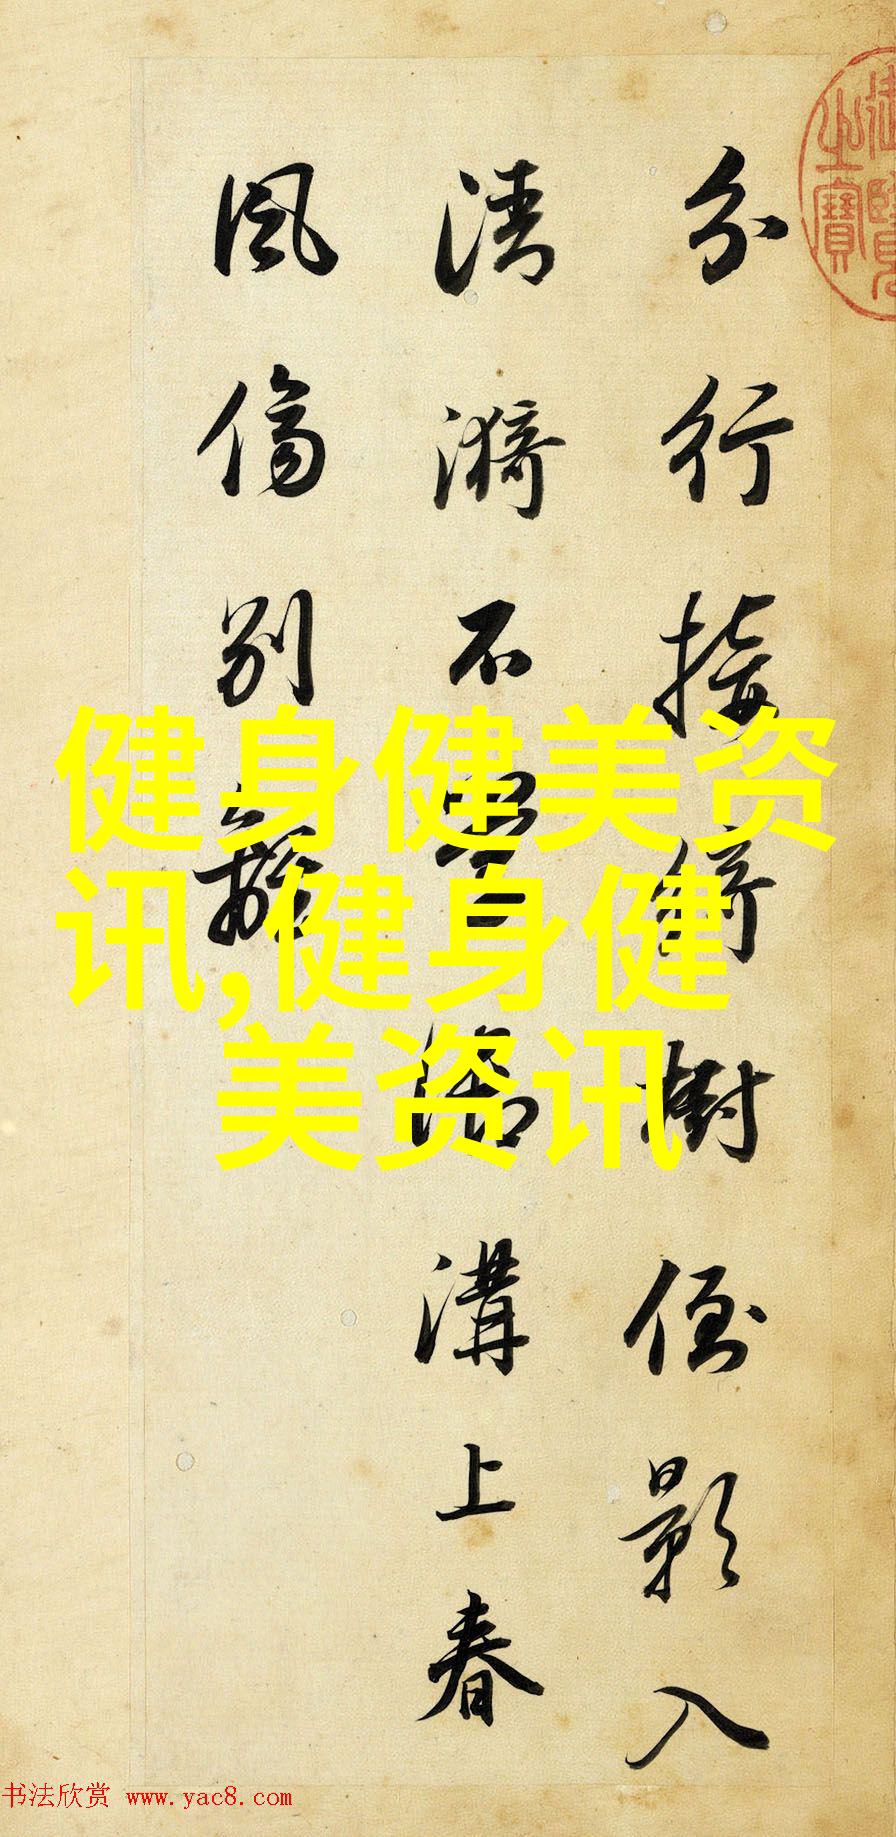 御覽
之寶
分行接綺樹倒影入
清漪不學御溝上春
風傷別離
健身健美资
讯,健身健
美资讯
书法欣赏 www.yac8.com